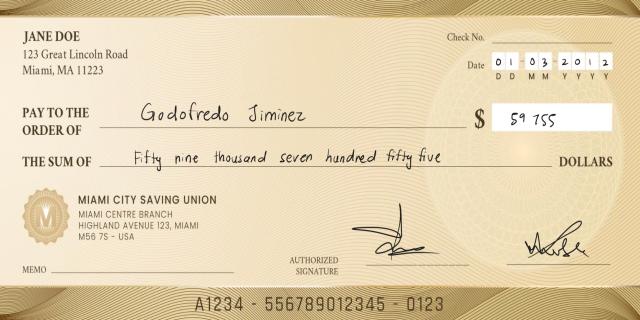 JANE DOE
123 Great Lincoln Road
Miami, MA 11223
Check No.
Date 01 03 2012
D D M M Y Y Y Y
PAY TO THE
ORDER OF Godofredo Jiminez $ 59 755
THE SUM OF Fifty nine thousand seven hundred fifty five DOLLARS
M
MIAMI CITY SAVING UNION
MIAMI CENTRE BRANCH
HIGHLAND AVENUE 123, MIAMI
M56 7S - USA
MEMO
AUTHORIZED
SIGNATURE
A1234 - 556789012345 - 0123